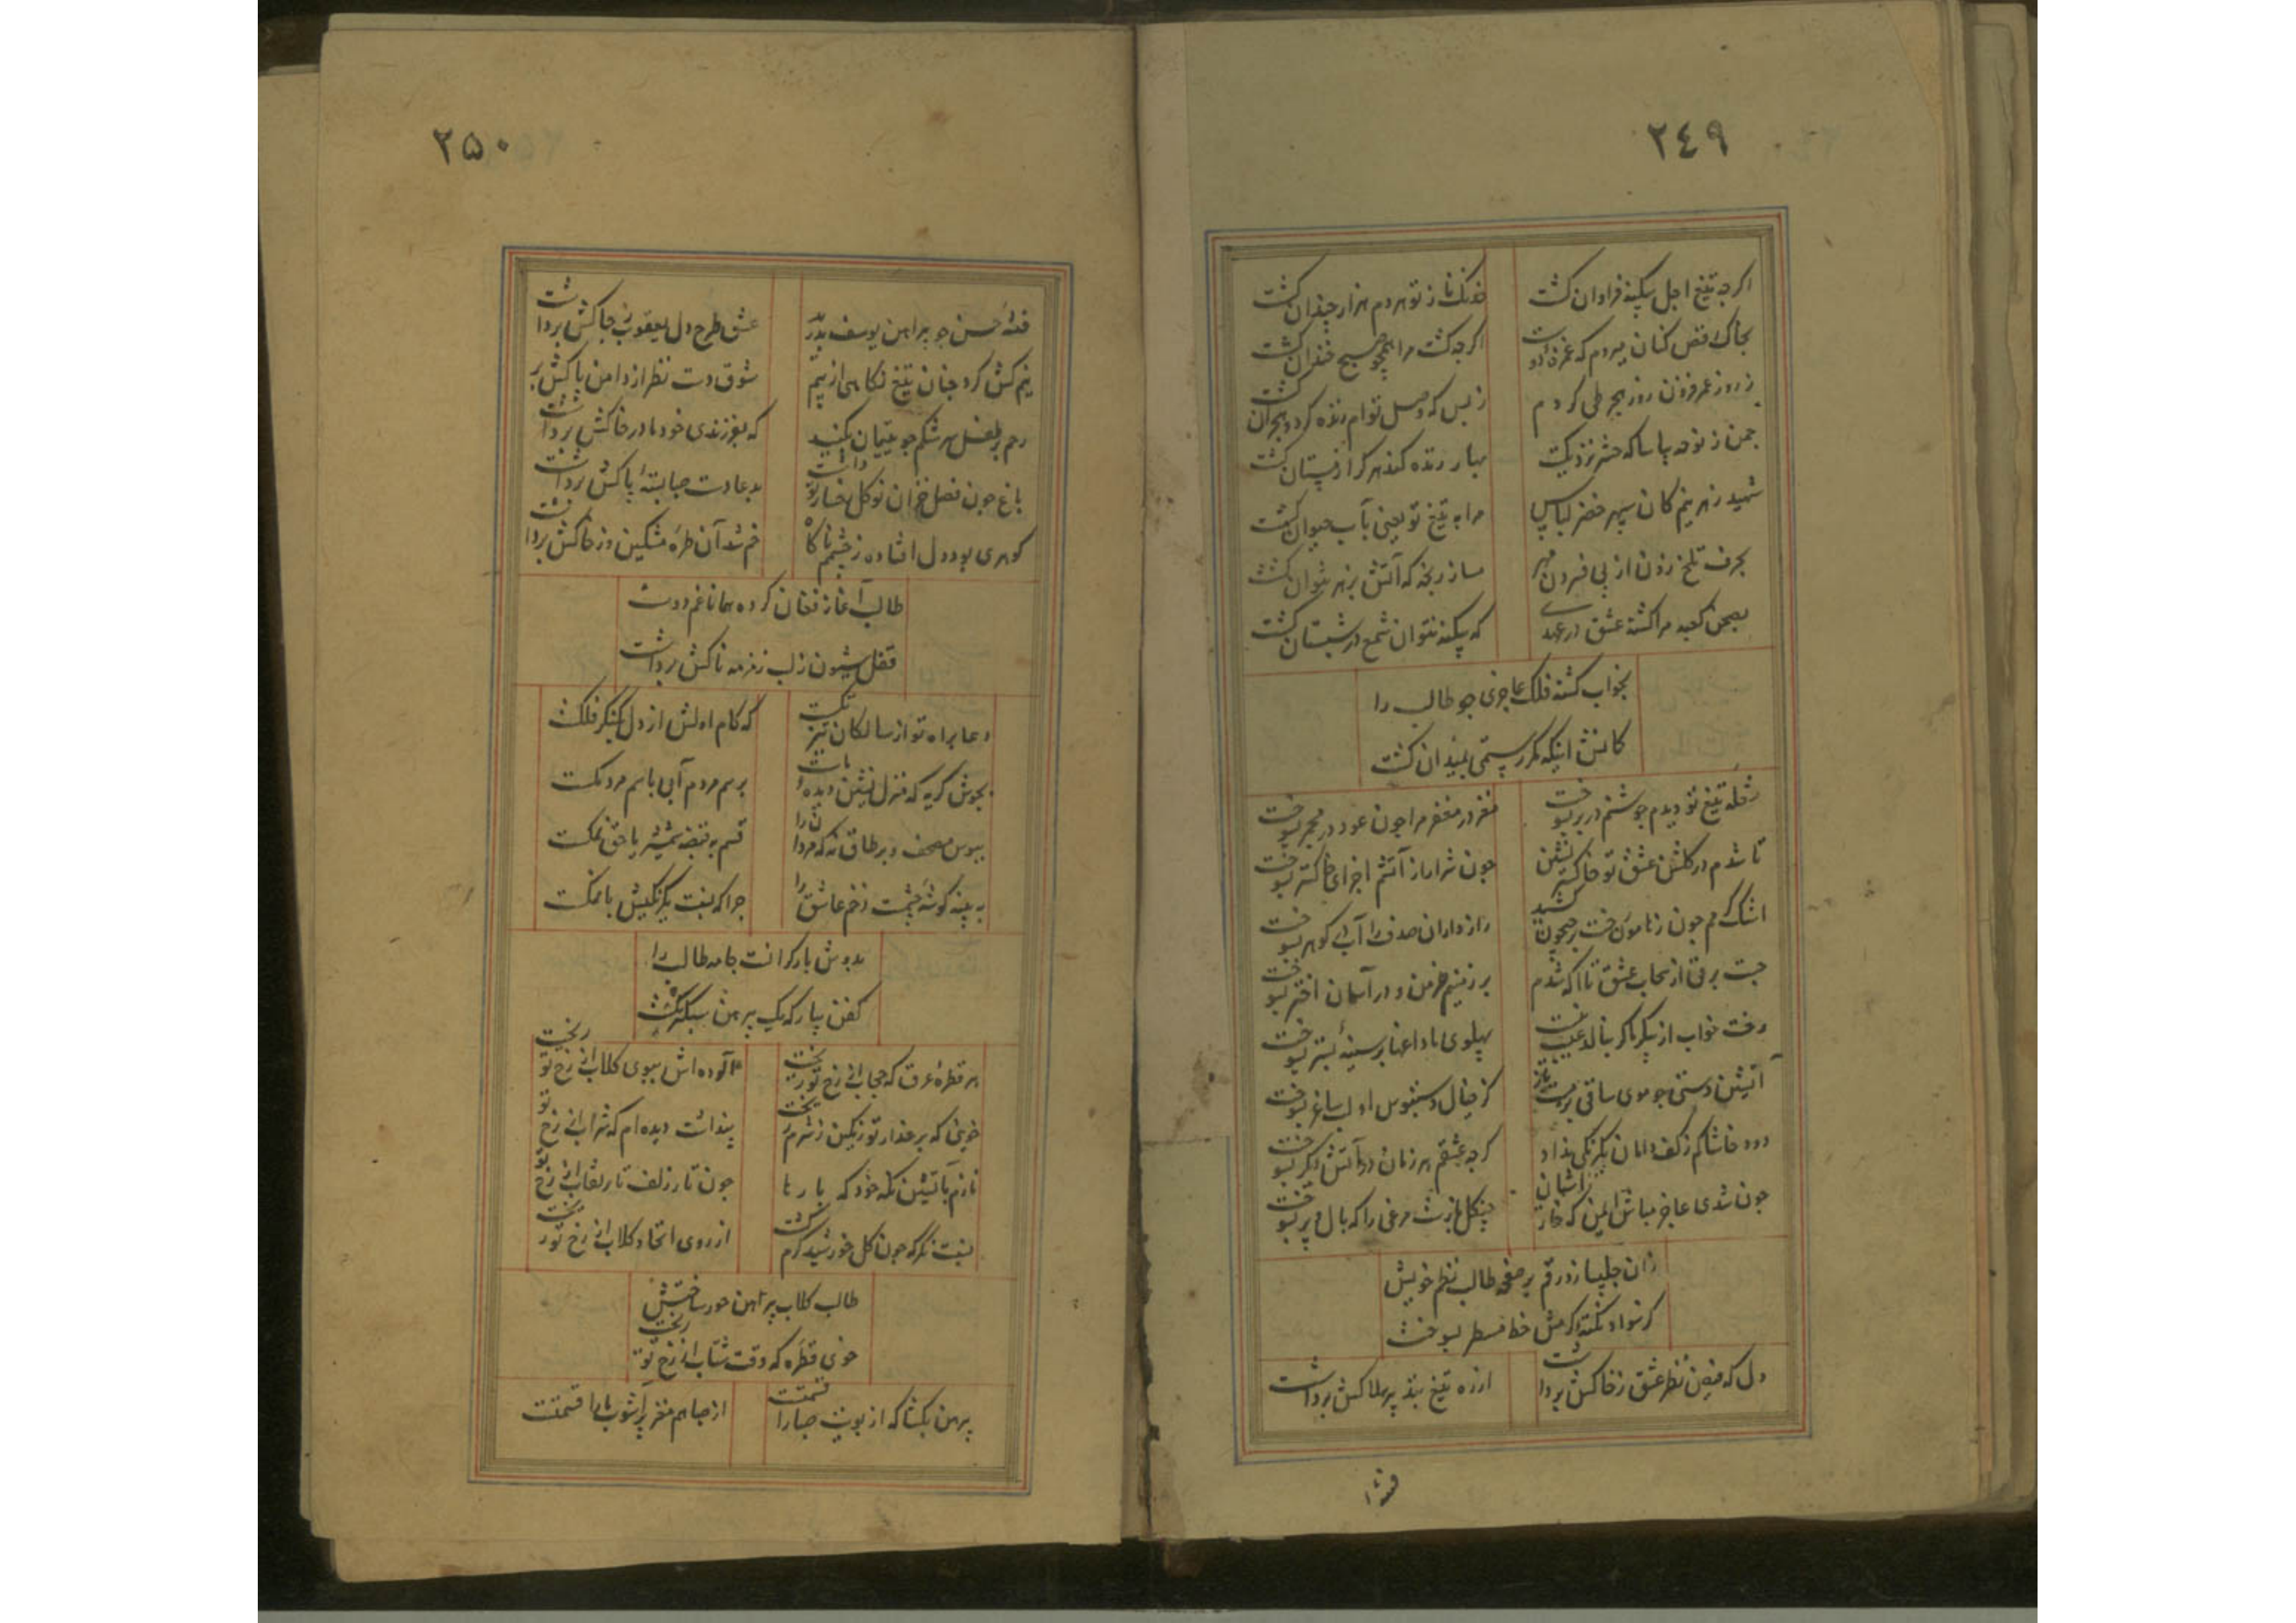 ۲٤۹
اکرجه تیغ اجل بیکنه فراوان کشت
خدنک ناز تو هر دم هزار چندان کشت
بخاک رقص کنان میروم که غمزه دوست
اکرجه کشت مرا همچو صبح خندان کشت
ز روز عمر فزون روز هجر طی کردم
ز بس که وصل توام زنده کرد و هجران کشت
جمن ز نوحه بیاسا که حشر نزدیکست
بهار زنده کند هر کرا زمستان کشت
شهید زهریم کان سپهر خضر لباس
مرا به تیغ تو یعنی بآب حیوان کشت
بحرف تلخ زدن از پی فسردن مهر
مساز رنجه که آتش بزهر نتوان کشت
بصحن کعبه مرا کشته عشق در عهدی
که بیکنه نتوان شمع در شبستان کشت
بخواب کشته فلک عاجزی جو طالب را
کمانش اینکه مکر رستمی بمیدان کشت
شعله تیغ تو دیدم جوشنم در بر بسوخت
مغز در مغفر مرا جون عود در مجمر بسوخت
تا شدم در کلشن عشق تو خاکستر نشین
جون شرار از آتشم اجزای خاکستر بسوخت
اشک کرمم جون ز نامون رخت بر جیحون کشید
رازداران صدف را آب در کوهر بسوخت
جست برقی از سحاب عشق تا اکه شدم
بر زمینم خرمن و در آسمان اختر بسوخت
رفت خواب از پیکر ما کر بنالد عیب نیست
پهلوی ما داغها بر سینهٔ بستر بسوخت
آتشین دستی جو موی ساقی بزمست باز
کز خیال دستبوس او لب ساغر بسوخت
دود خاشاکم ز کف دامان یکرنکی نداد
کرجه عشقم هر زمان در آتش دیکر بسوخت
جون شدی عاجز مباش ایمن که خار آشیان
چنکل بازست مرغی را که بال و پر بسوخت
زان جلیپا زد رقم بر صفحه طالب نظم خویش
کز سواد نکته کرمش خط مسطر بسوخت
دل که فیض نظر عشق ز خاکش برداشت
ارزه تیغ بند پر هلاکش برداشت
فتنهٔ
۲۵۰
فتنهٔ حسن جو پیراهن یوسف بدرید
عشق طرح دل یعقوب ز جاکش برداشت
نیم کش کرد جنان تیغ نکاهی از بیم
شوق دست نظر از دامن پاکش بر داشت
رحم بر طفل سرشکم جو یتیمان بکنید
که بفرزندی خود مادر خاکش برداشت
باغ جون فصل خزان نوکل رخسار تو داشت
بدعا دست صبا بستهٔ پاکش برداشت
کوهری بود دل افتاده ز چشم ناکاه
خم شد آن طره مشکین و ز خاکش برداشت
طالب آغاز فغان کرده همانا غم دوست
قفل شیون ز لب زمزمه ناکش برداشت
دعا براه تو از سالکان تیز تکست
که کام اولش از دل بکنکر فلکست
بجوش کریه که منزل نشین دیده ماست
برسم مردم آبی باسم مردمکست
ببوس مصحف و بر طاق نه که مردانرا
قسم به قبضه شمشیر یا حق نمکست
به بیند کوشه چشمت زخم عاشق را
جرا که نسبت یکرنکیش با نمکست
بدوش بار کرانست جامه طالب را
کفن بیار که یک پیرهن سبکترکست
هر قطرهٔ عرق که حجاب از رخ تو ریخت
آلوده اش ببوی کلاب از رخ تو ریخت
خوئی که بر عذار تو رنکین ز شرم ریخت
پنداشت دیده ام که شراب از رخ تو ریخت
نازم بآتشین نکه خود که بارها
جون تار زلف تار نقاب از رخ تو ریخت
نسبت نکر که جون کل خورشید کرم کشت
از روی اتحاد کلاب از رخ تو ریخت
طالب کلاب پیرهن حور ساختش
خوی قطره که وقت شتاب از رخ تو ریخت
پیرهن بکشا که از بویت صبا را قسمتست
از صبا هم مغز پر آشوب ما را قسمتست